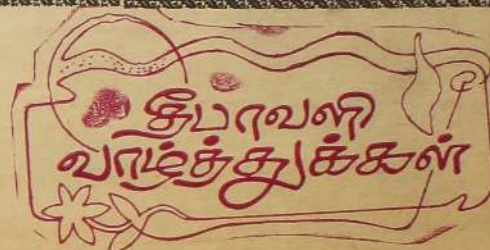 தீபாவளி
வாழ்த்துக்கள்